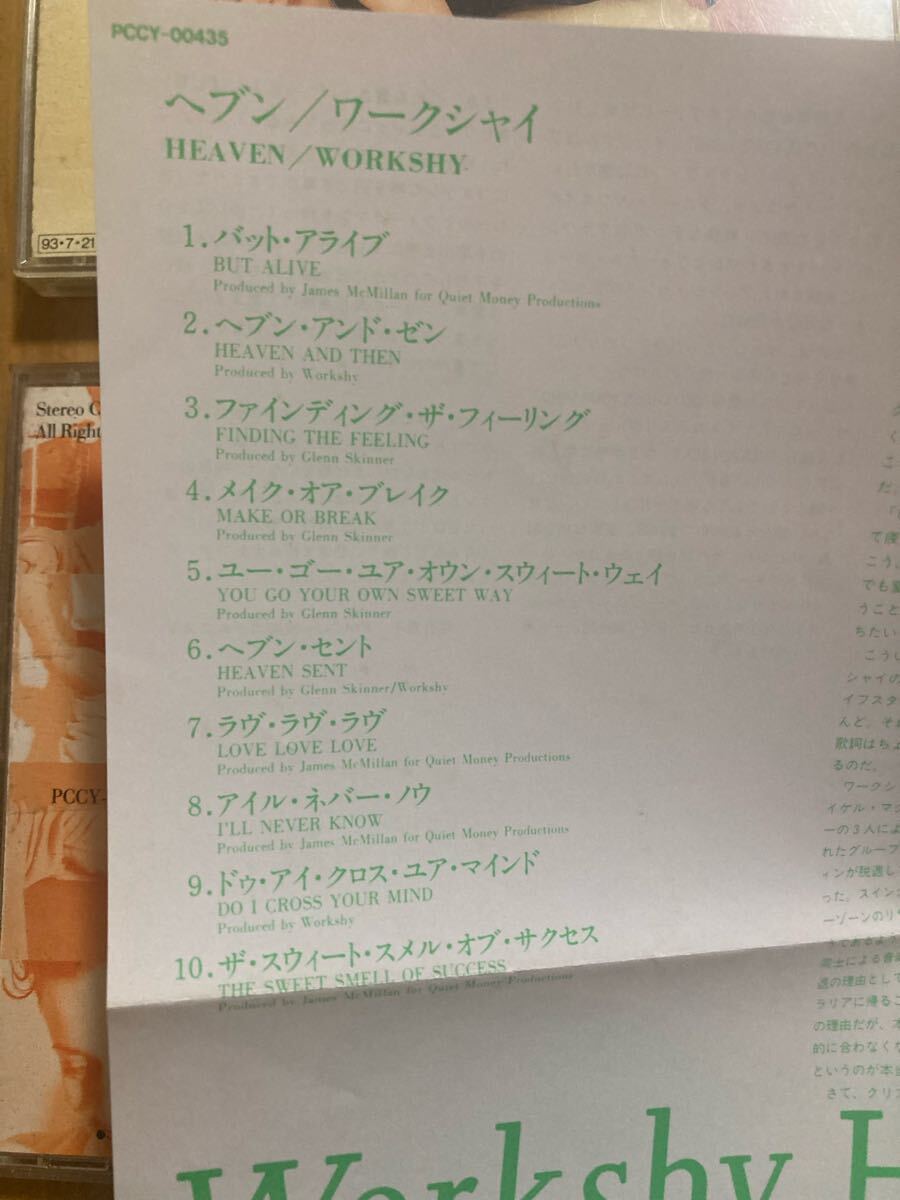 PCCY-00435
ヘブン／ワークシャイ
HEAVEN/WORKSHY
1.バット・アライブ
BUT ALIVE
Produced by James McMillan for Quiet Money Productions
2.ヘブン・アンド・ゼン
HEAVEN AND THEN
Produced by Workshy
3.ファインディング・ザ・フィーリング
FINDING THE FEELING
Produced by Glenn Skinner
4.メイク・オア・ブレイク
MAKE OR BREAK
Produced by Glenn Skinner
5.ユー・ゴー・ユア・オウン・スウィート・ウェイ
YOU GO YOUR OWN SWEET WAY
Produced by Glenn Skinner
6.ヘブン・セント
HEAVEN SENT
Produced by Glenn Skinner/Workshy
7.ラヴ・ラヴ・ラヴ
LOVE LOVE LOVE
Produced by James McMillan for Quiet Money Productions
8.アイル・ネバー・ノウ
I'LL NEVER KNOW
Produced by James McMillan for Quiet Money Productions
9.ドゥ・アイ・クロス・ユア・マインド
DO I CROSS YOUR MIND
Produced by Workshy
10.ザ・スウィート・スメル・オブ・サクセス
THE SWEET SMELL OF SUCCESS
Produced by James McMillan for Quiet Money Productions
Workshy H
93・7・21
Stereo C
All Right
PCCY-
く
こ
だ。
て
こう、
でも
うこと
ちたい
こうい
シャイの
イフスタ
んど、それ
歌詞はちょ
るのだ。
ワークシ
イケル・マ
ーの3人によ
れたグループ
ィンが脱退し
った。スイン
ーゾーンのリ
うであるよう
同士による音
退の理由として
ラリアに帰るこ
の理由だが、オ
的に合わなくな
というのが本当
さて、クリ